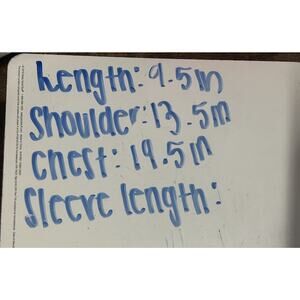 Length: 9.5in
Shoulder: 13.5in
Chest: 19.5in
Sleeve length: